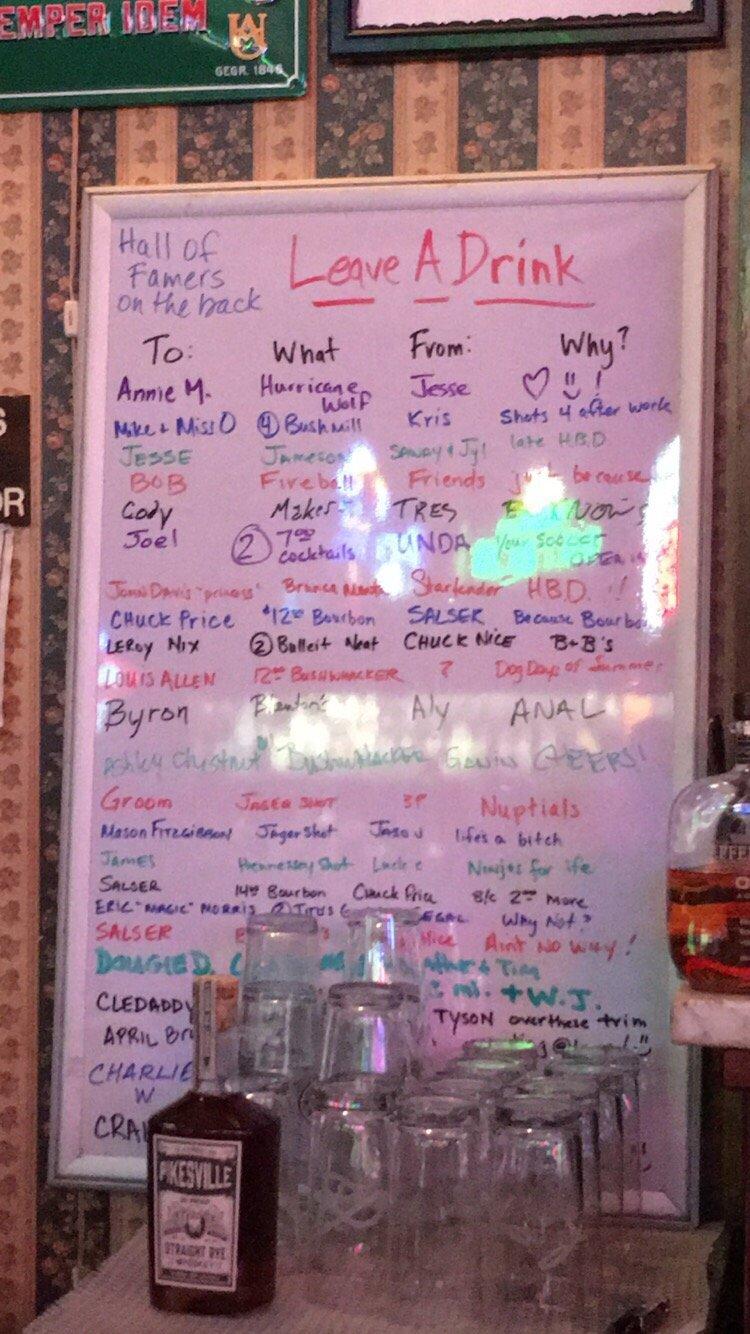 EMPER IDEM
GEGR. 1846
Hall of
Famers
on the back
Leave A Drink
To: What From: Why?
Annie M. Hurricane Wolf Jesse ♡ !
Mike + Miss O ④ Bushmill Kris Shots 4 after work
JESSE Jameson SANDY & Jyl late H.B.D
BOB Fireball Friends just because
Cody Maker's TRES
Joel ② 7⁰⁰ cocktails UNDA Your SOCCER
John Davis "princess" Branca Menta Startender H.B.D. !!
CHUCK Price $12⁰⁰ Bourbon SALSER Because Bourbon
LEROY NIX ② Bulleit Neat CHUCK NICE B+B's
LOUIS ALLEN 12⁰⁰ BUSHWHACKER ? Dog Days of Summer
Byron Blanton's Aly ANAL
Ashley Chestnut BushwHacker GAVIN CHEERS!
Groom JAGER SHOT Nuptials
Mason FITZGIBBON Jager Shot Jason life's a bitch
JAMES Hennessey Shot Luckie Ninjas for life
SALSER 14⁰⁰ Bourbon Chuck Price B/c 2⁰⁰ More
ERIC "MAGIC" MORRIS ② Tito's EGAL Why Not?
SALSER Nice Ain't No Way!
DOUGIE D. + Tim
+ W.J.
CLEDADDY TYSON over these trim
APRIL
CHARLIE
W
CRA
PIKESVILLE
STRAIGHT RYE
WHISKEY
S
OR